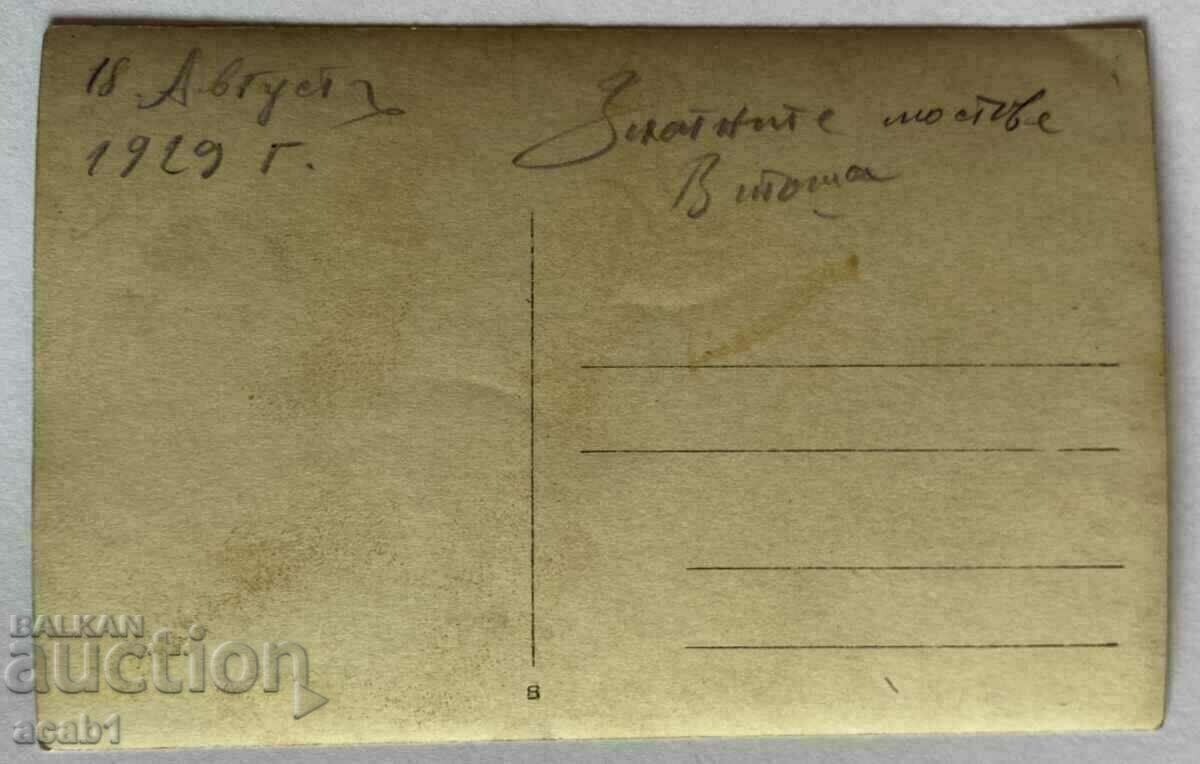 18 Августъ
1929 г.
Златните мостъве
Витоша
8
BALKAN
auction
acab1